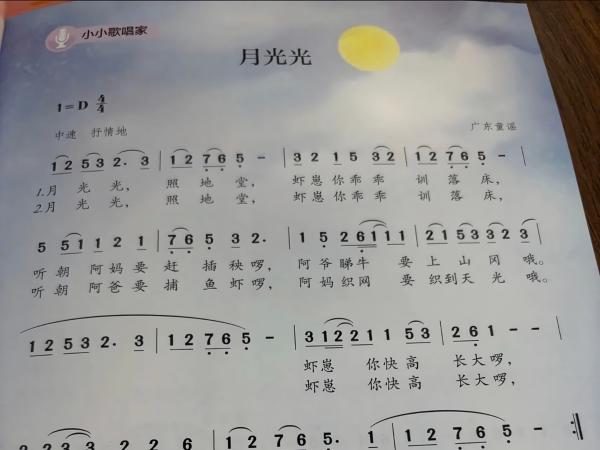 小小歌唱家
月光光
1=D 4/4
中速 抒情地
广东童谣
1 2 5 3 2. 3 | 1 2 7 6 5 - | 3 2 1 5 3 2 | 1 2 7 6 5 - |
1.月 光 光, 照 地 堂, 虾崽你乖乖 训落床,
2.月 光 光, 照 地 堂, 虾崽你乖乖 训落床,
5 5 5 1 1 2 1 | 7 6 5 3 2. | 1 5 2 6 1 1 1 | 2 1 5 3 3 2 |
听朝 阿妈要 赶 插秧啰, 阿爷睇牛 要上山冈 哦。
听朝 阿爸要 捕 鱼虾啰, 阿妈织网 要织到天光 哦。
1 2 5 3 2. 3 | 1 2 7 6 5 - | 3 1 2 2 1 1 5 3 | 2 6 1 - |
虾崽 你快高 长大啰,
虾崽 你快高 长大啰,
2 2 3 5 3 2 2 6 | 1 2 7 6 5. 1 | 1 2 7 6 5 - :‖